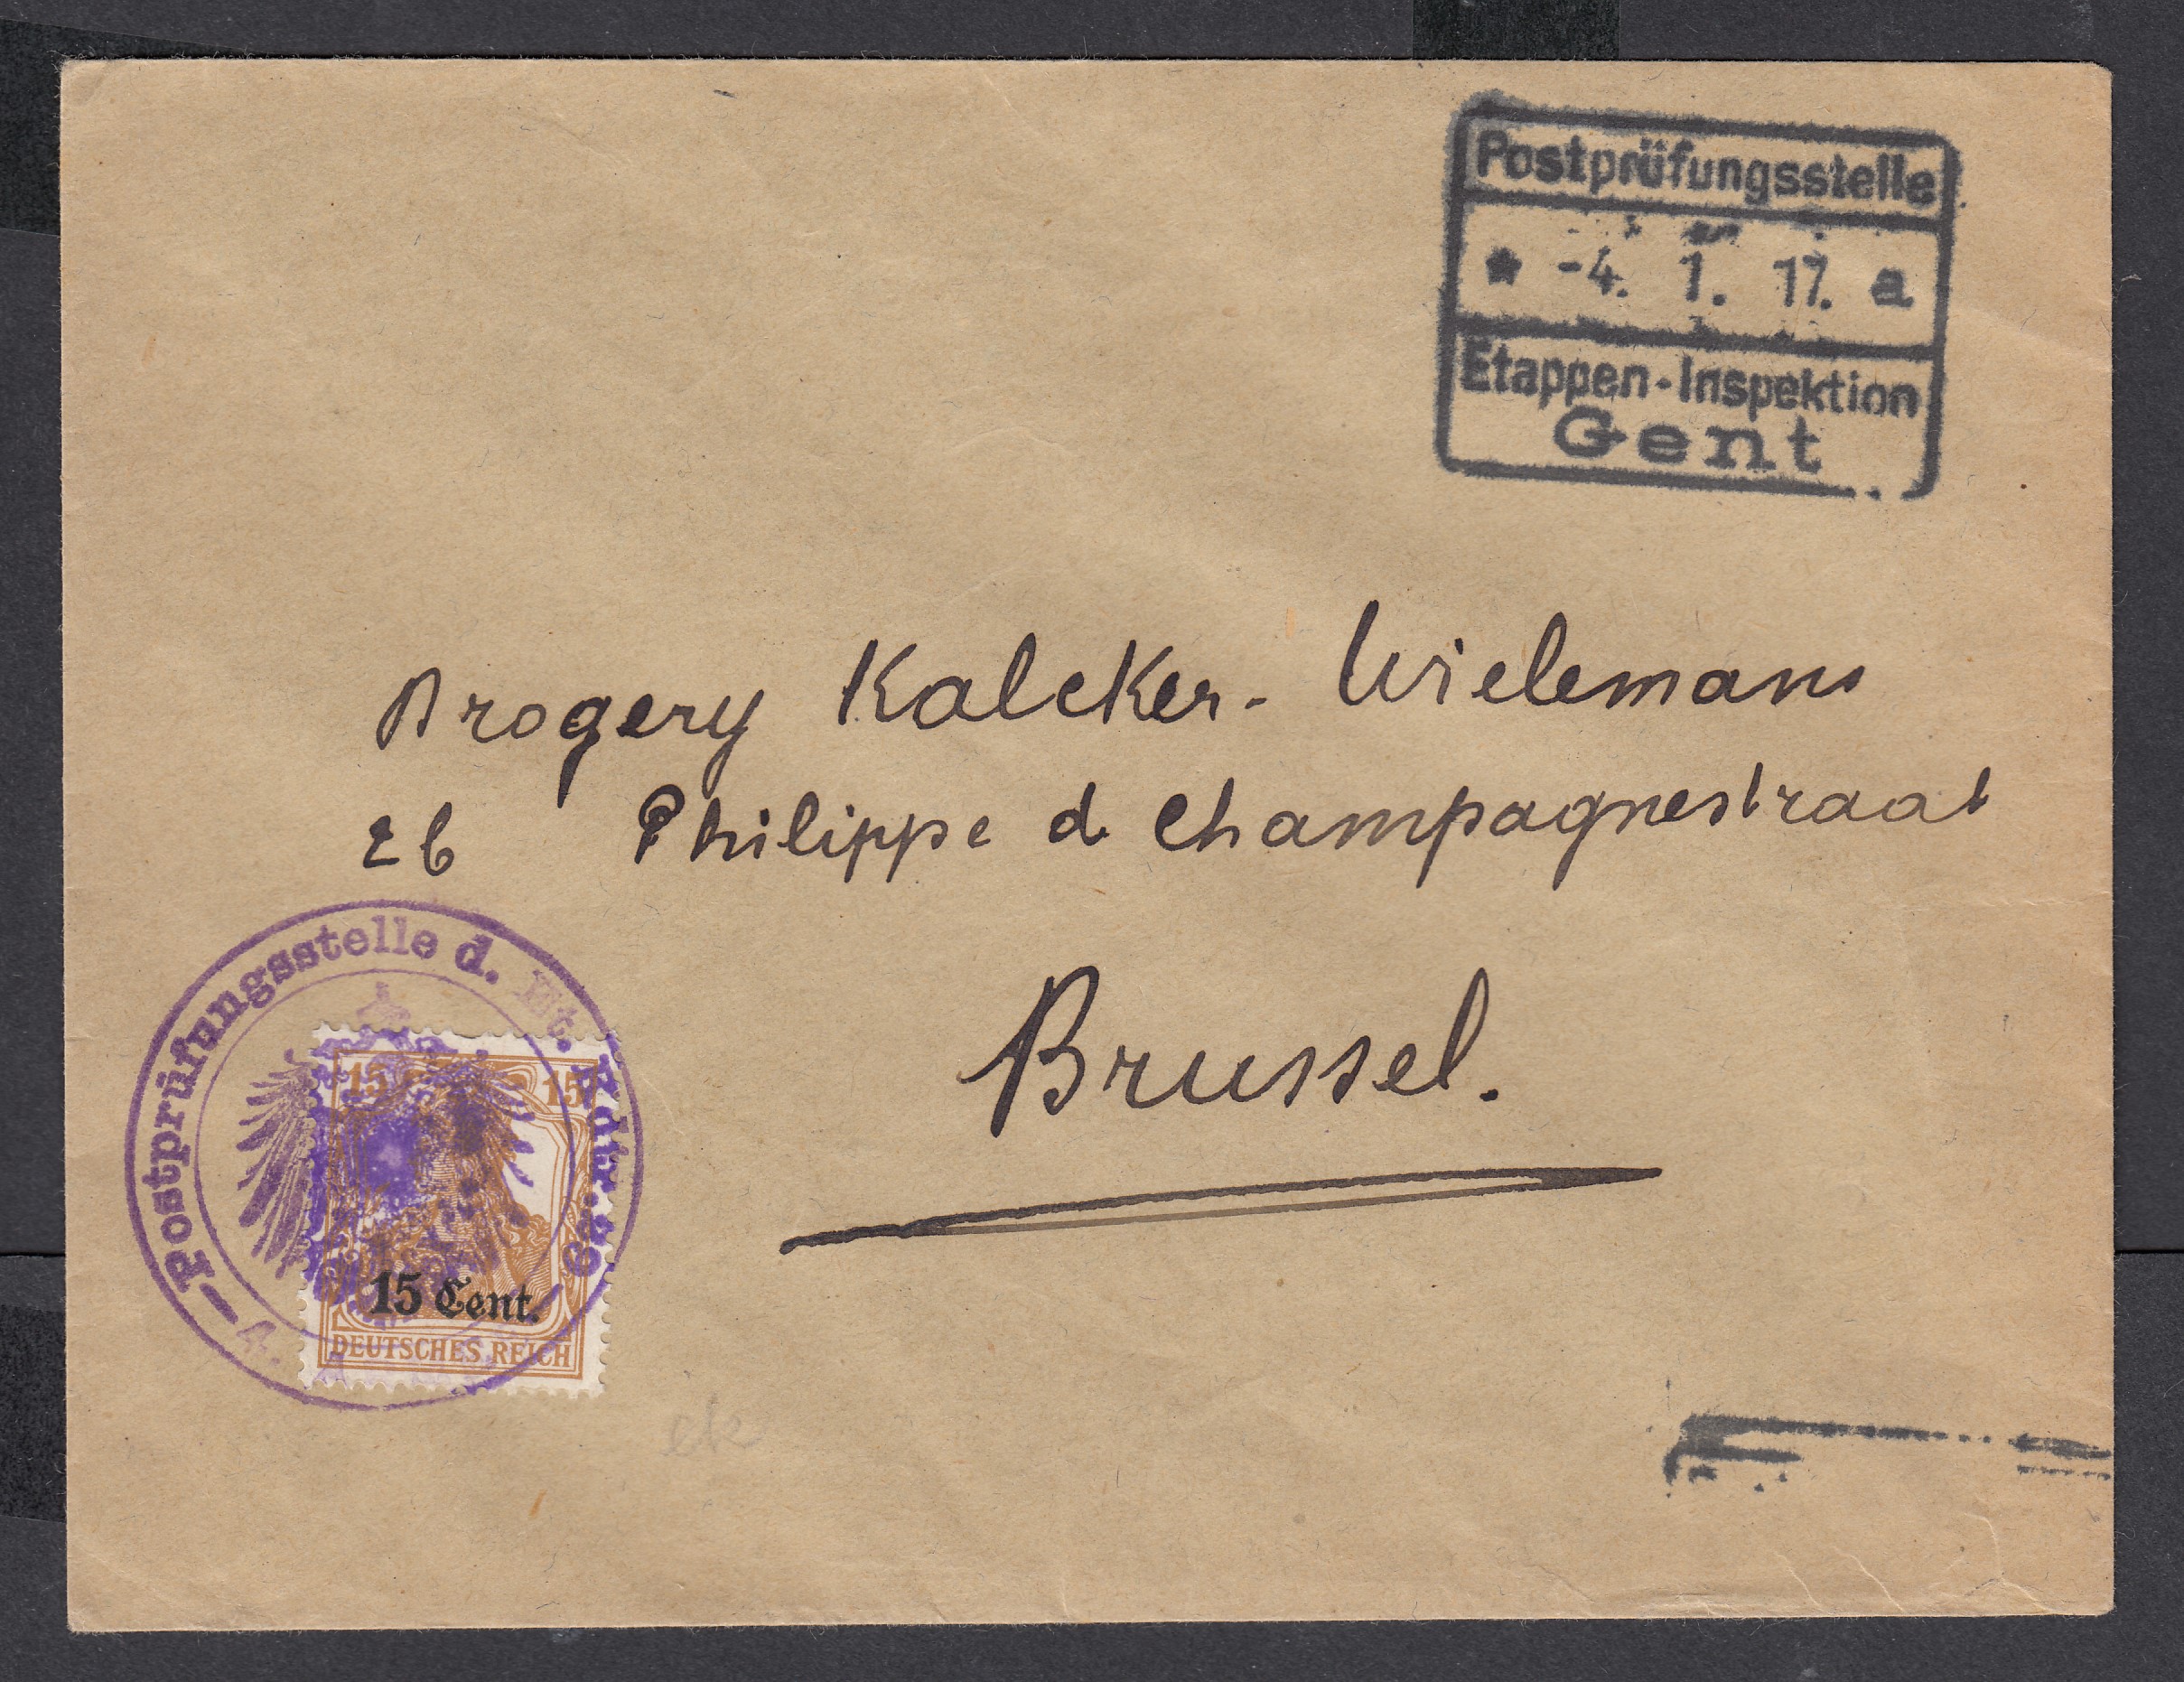 Postprüfungsstelle
* -4. 1. 17. a
Etappen-Inspektion
Gent
Drogery Kalcker-Wielemans
26 Philippe d Champagnestraat
Brussel.
Postprüfungsstelle d. Et.
4.
15 15
15 Cent.
DEUTSCHES REICH